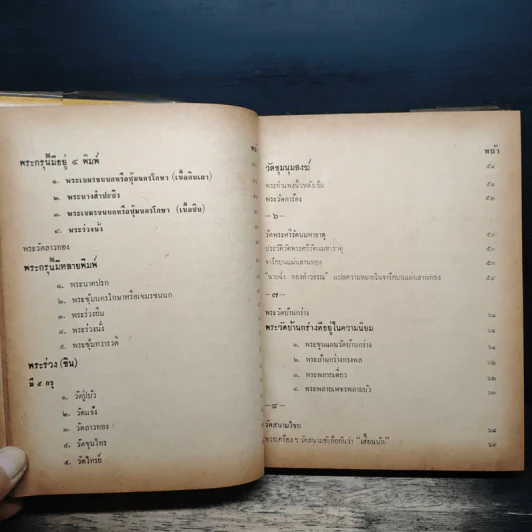 พระกรุนี้มีอยู่ ๔ พิมพ์
๑. พระเขมรขนนกหรือซุ้มนครโกษา (เนื้อดินเผา)
๒. พระนางสำปะซิว
๓. พระเขมรขนนกหรือซุ้มนครโกษา (เนื้อชิน)
๔. พระร่วงนั่ง
พระวัดลาวทอง
พระกรุนี้มีหลายพิมพ์
๑. พระนาคปรก
๒. พระซุ้มนครโกษาหรือเขมรขนนก
๓. พระร่วงยืน
๔. พระร่วงนั่ง
๕. พระซุ้มทวารวดี
พระร่วง (ชิน)
มี ๕ กรุ
๑. วัดปู่บัว
๒. วัดแจ้ง
๓. วัดลาวทอง
๔. วัดขุนไกร
๕. วัดไทรย์
หน้า
วัดชุมนุมสงฆ์ ๕๑
พระกำแพงนิ้วหลังเข็ม ๕๑
พระวัดการ้อง ๕๒
—๖—
วัดพระศรีรัตนมหาธาตุ ๕๓
ประวัติวัดพระศรีรัตนมหาธาตุ ๕๓
จารึกบนแผ่นลานทอง ๕๓
"นายฉ่ำ ทองคำวรรณ" แปลความหมายในจารึกบนแผ่นลานทอง ๕๔
—๗—
พระวัดบ้านกร่าง ๖๑
พระวัดบ้านกร่างที่อยู่ในความนิยม ๖๑
๑. พระขุนแผนวัดบ้านกร่าง ๖๑
๒. พระบ้านกร่างทรงพล ๖๑
๓. พระพลายเดี่ยว ๖๑
๔. พระพลายเพชรพลายบัว ๖๑
—๘—
วัดสนามไชย ๖๘
พระเครื่อง ๆ วัดสนามชัยลือกันว่า "เฮี้ยนนัก" ๖๙